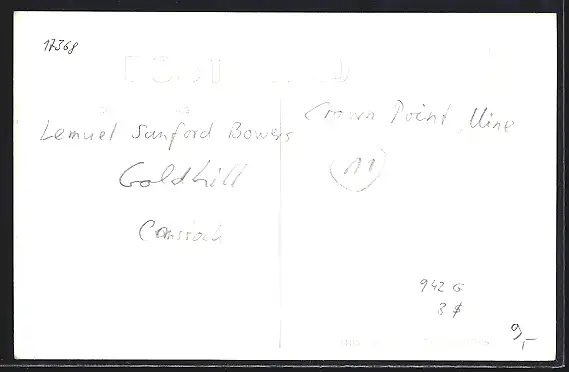 17368
Lemuel Sanford Bowers
Goldhill
Comstock
Crown Point Mine
11
942 G
3 $
9,-